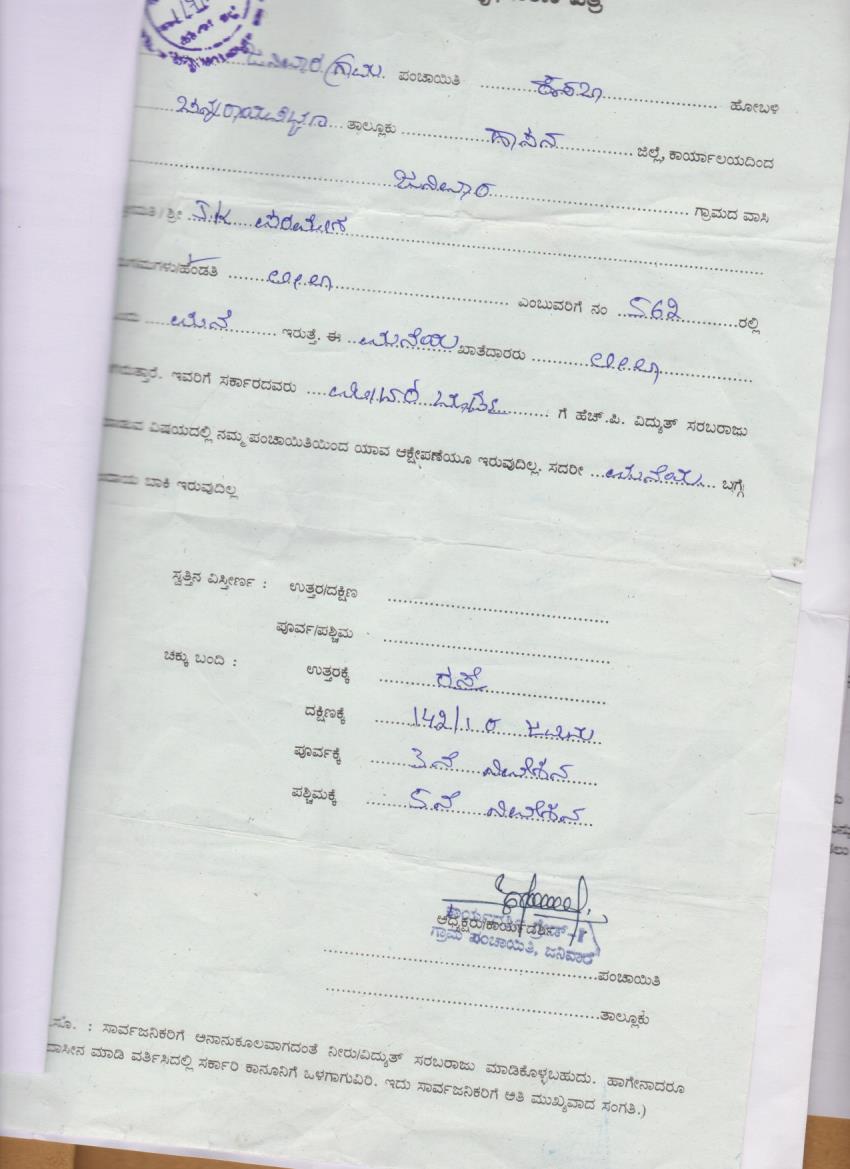 ಪತ್ರ
ಜನಿವಾರ ಗ್ರಾಮ. ಪಂಚಾಯಿತಿ ........ ಕಸಬಾ ........ ಹೋಬಳಿ
ಚನ್ನರಾಯಪಟ್ಟಣ ... ತಾಲ್ಲೂಕು ........ ಹಾಸನ ........ ಜಿಲ್ಲೆ, ಕಾರ್ಯಾಲಯದಿಂದ
........ ಜನಿವಾರ ........ ಗ್ರಾಮದ ವಾಸಿ
/ ಶ್ರೀ ........
/ಹೆಂಡತಿ ........ ಲೀಲಾ ........ ಎಂಬುವರಿಗೆ ನಂ ... 562 ........ ರಲ್ಲಿ
........ ಮನೆ ........ ಇರುತ್ತೆ. ಈ ... ಮನೆಯ ... ಖಾತೆದಾರರು ........ ಲೀಲಾ ........
ಇವರಿಗೆ ಸರ್ಕಾರದವರು ........ ಗೆ ಹೆಚ್.ಪಿ. ವಿದ್ಯುತ್ ಸರಬರಾಜು
ವಿಷಯದಲ್ಲಿ ನಮ್ಮ ಪಂಚಾಯಿತಿಯಿಂದ ಯಾವ ಆಕ್ಷೇಪಣೆಯೂ ಇರುವುದಿಲ್ಲ. ಸದರೀ ... ಮನೆಯ ... ಬಗ್ಗೆ
ಬಾಕಿ ಇರುವುದಿಲ್ಲ
ಸ್ವತ್ತಿನ ವಿಸ್ತೀರ್ಣ : ಉತ್ತರ/ದಕ್ಷಿಣ ........
ಪೂರ್ವ/ಪಶ್ಚಿಮ ........
ಚಕ್ಕು ಬಂದಿ : ಉತ್ತರಕ್ಕೆ ........ ರಸ್ತೆ ........
ದಕ್ಷಿಣಕ್ಕೆ ... 142/1 ರ ಜಮೀನು
ಪೂರ್ವಕ್ಕೆ ........ 3 ನೆ ನಿವೇಶನ
ಪಶ್ಚಿಮಕ್ಕೆ ........ 5 ನೆ ನಿವೇಶನ
ಅಧ್ಯಕ್ಷರು/ಕಾರ್ಯದರ್ಶಿ
ಗ್ರಾಮ ಪಂಚಾಯಿತಿ, ಜನಿವಾರ
........ಪಂಚಾಯಿತಿ
........ತಾಲ್ಲೂಕು
: ಸಾರ್ವಜನಿಕರಿಗೆ ಅನಾನುಕೂಲವಾಗದಂತೆ ನೀರು/ವಿದ್ಯುತ್ ಸರಬರಾಜು ಮಾಡಿಕೊಳ್ಳಬಹುದು. ಹಾಗೇನಾದರೂ
ಮಾಡಿ ವರ್ತಿಸಿದಲ್ಲಿ ಸರ್ಕಾರಿ ಕಾನೂನಿಗೆ ಒಳಗಾಗುವಿರಿ. ಇದು ಸಾರ್ವಜನಿಕರಿಗೆ ಅತಿ ಮುಖ್ಯವಾದ ಸಂಗತಿ.)